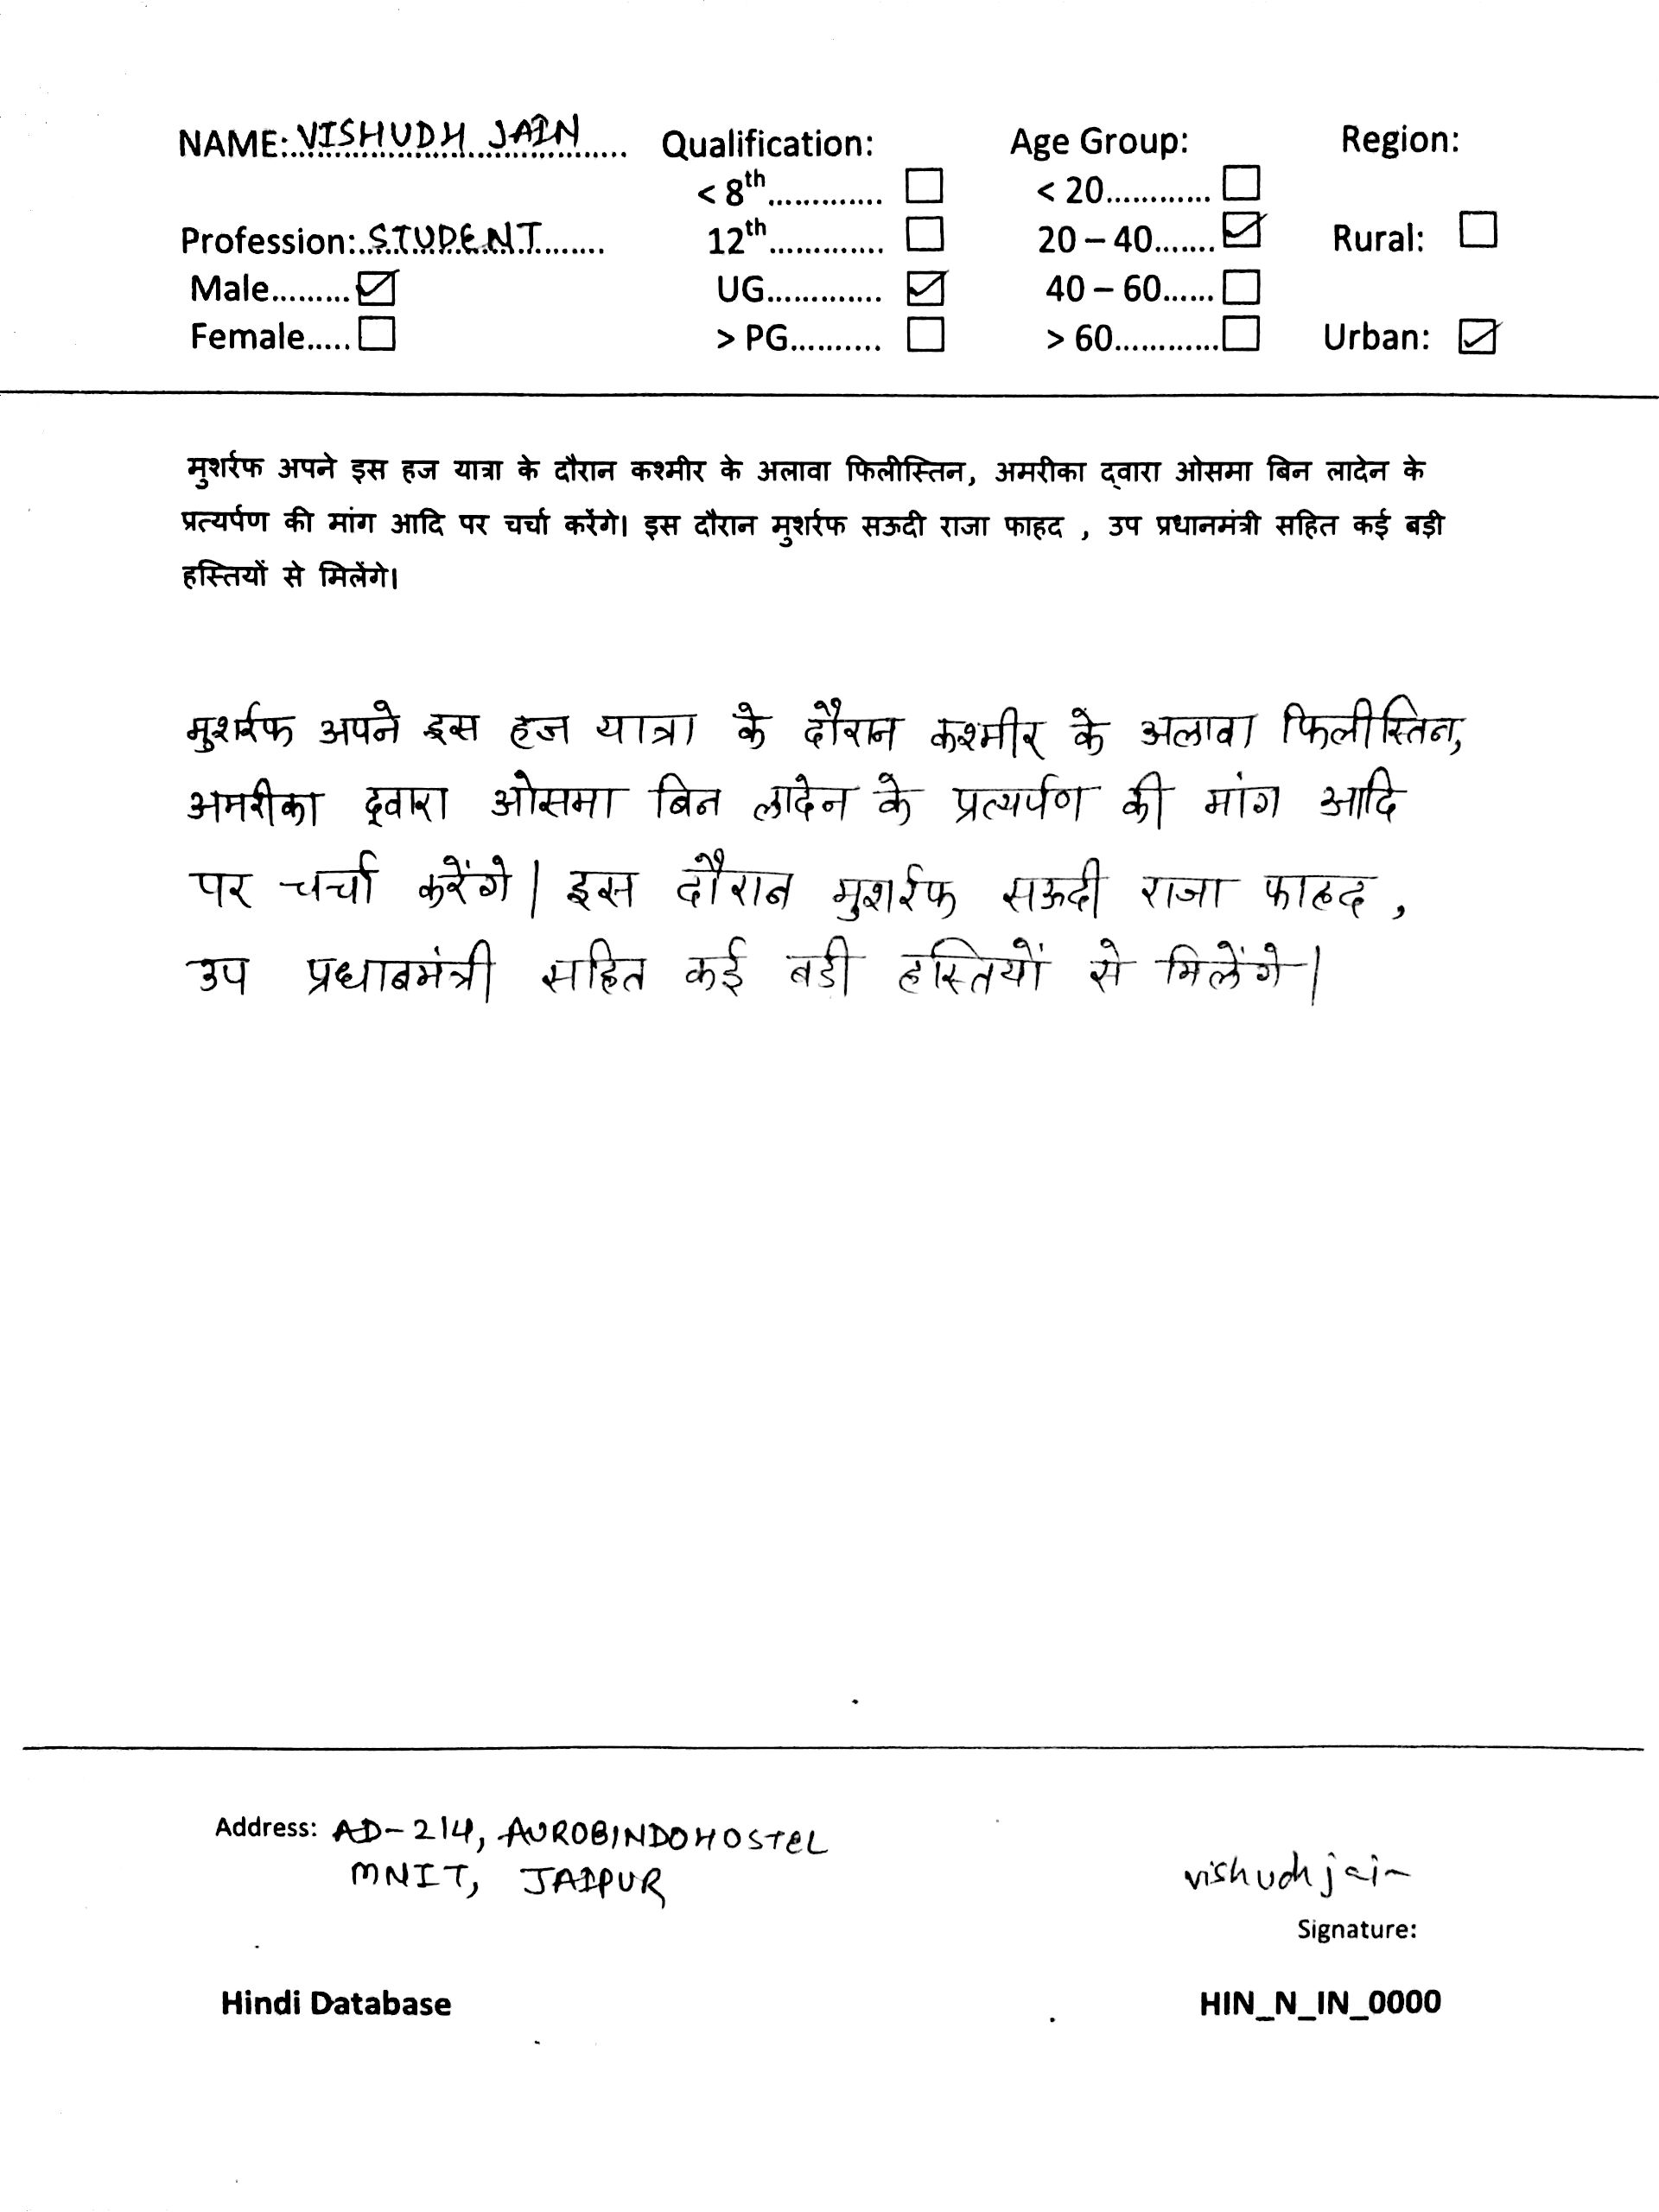 NAME: VISHUDH JAIN Qualification: Age Group: Region:
< 8th............. ☐ < 20............ ☐
Profession: STUDENT 12th............. ☐ 20 – 40....... ☑ Rural: ☐
Male......... ☑ UG............. ☑ 40 – 60...... ☐
Female..... ☐ > PG.......... ☐ > 60............ ☐ Urban: ☑
मुशर्रफ अपने इस हज यात्रा के दौरान कश्मीर के अलावा फिलीस्तिन, अमरीका द्वारा ओसमा बिन लादेन के
प्रत्यर्पण की मांग आदि पर चर्चा करेंगे। इस दौरान मुशर्रफ सऊदी राजा फाहद , उप प्रधानमंत्री सहित कई बड़ी
हस्तियों से मिलेंगे।
मुशर्रफ अपने इस हज यात्रा के दौरान कश्मीर के अलावा फिलीस्तिन,
अमरीका द्वारा ओसमा बिन लादेन के प्रत्यर्पण की मांग आदि
पर चर्चा करेंगे। इस दौरान मुशर्रफ सऊदी राजा फाहद ,
उप प्रधानमंत्री सहित कई बडी हस्तियों से मिलेंगे।
Address: AD-214, AUROBINDO HOSTEL
MNIT, JAIPUR
vishudh jain
Signature:
Hindi Database HIN_N_IN_0000